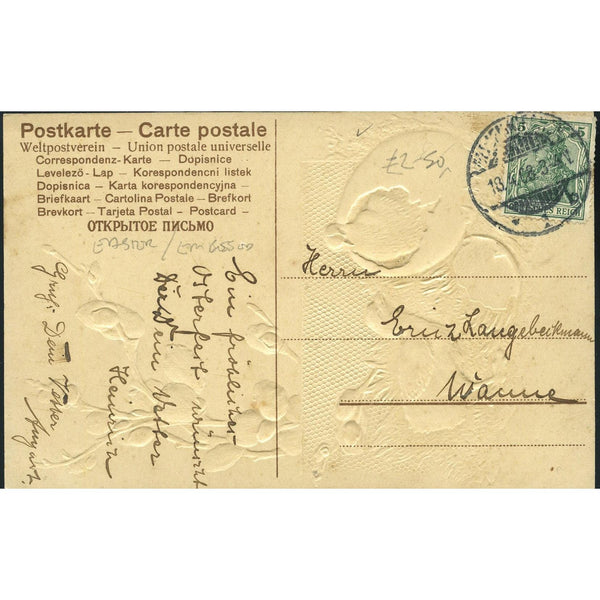 Postkarte — Carte postale
Weltpostverein — Union postale universelle
Correspondenz-Karte — Dopisnice
Levelező - Lap — Korespondencni listek
Dopisnica — Karta korespondencyjna —
Briefkaart — Cartolina Postale — Brefkort
Brevkort — Tarjeta Postal — Postcard —
ОТКРЫТОЕ ПИСЬМО
£2-50,
5 5
REICH
Herrn
Langebeikmann
Wanne
Ein fröhliches
Osterfest wünscht
Dir Dein Vetter
Heinrich
Gruß Dein Vetter
August.